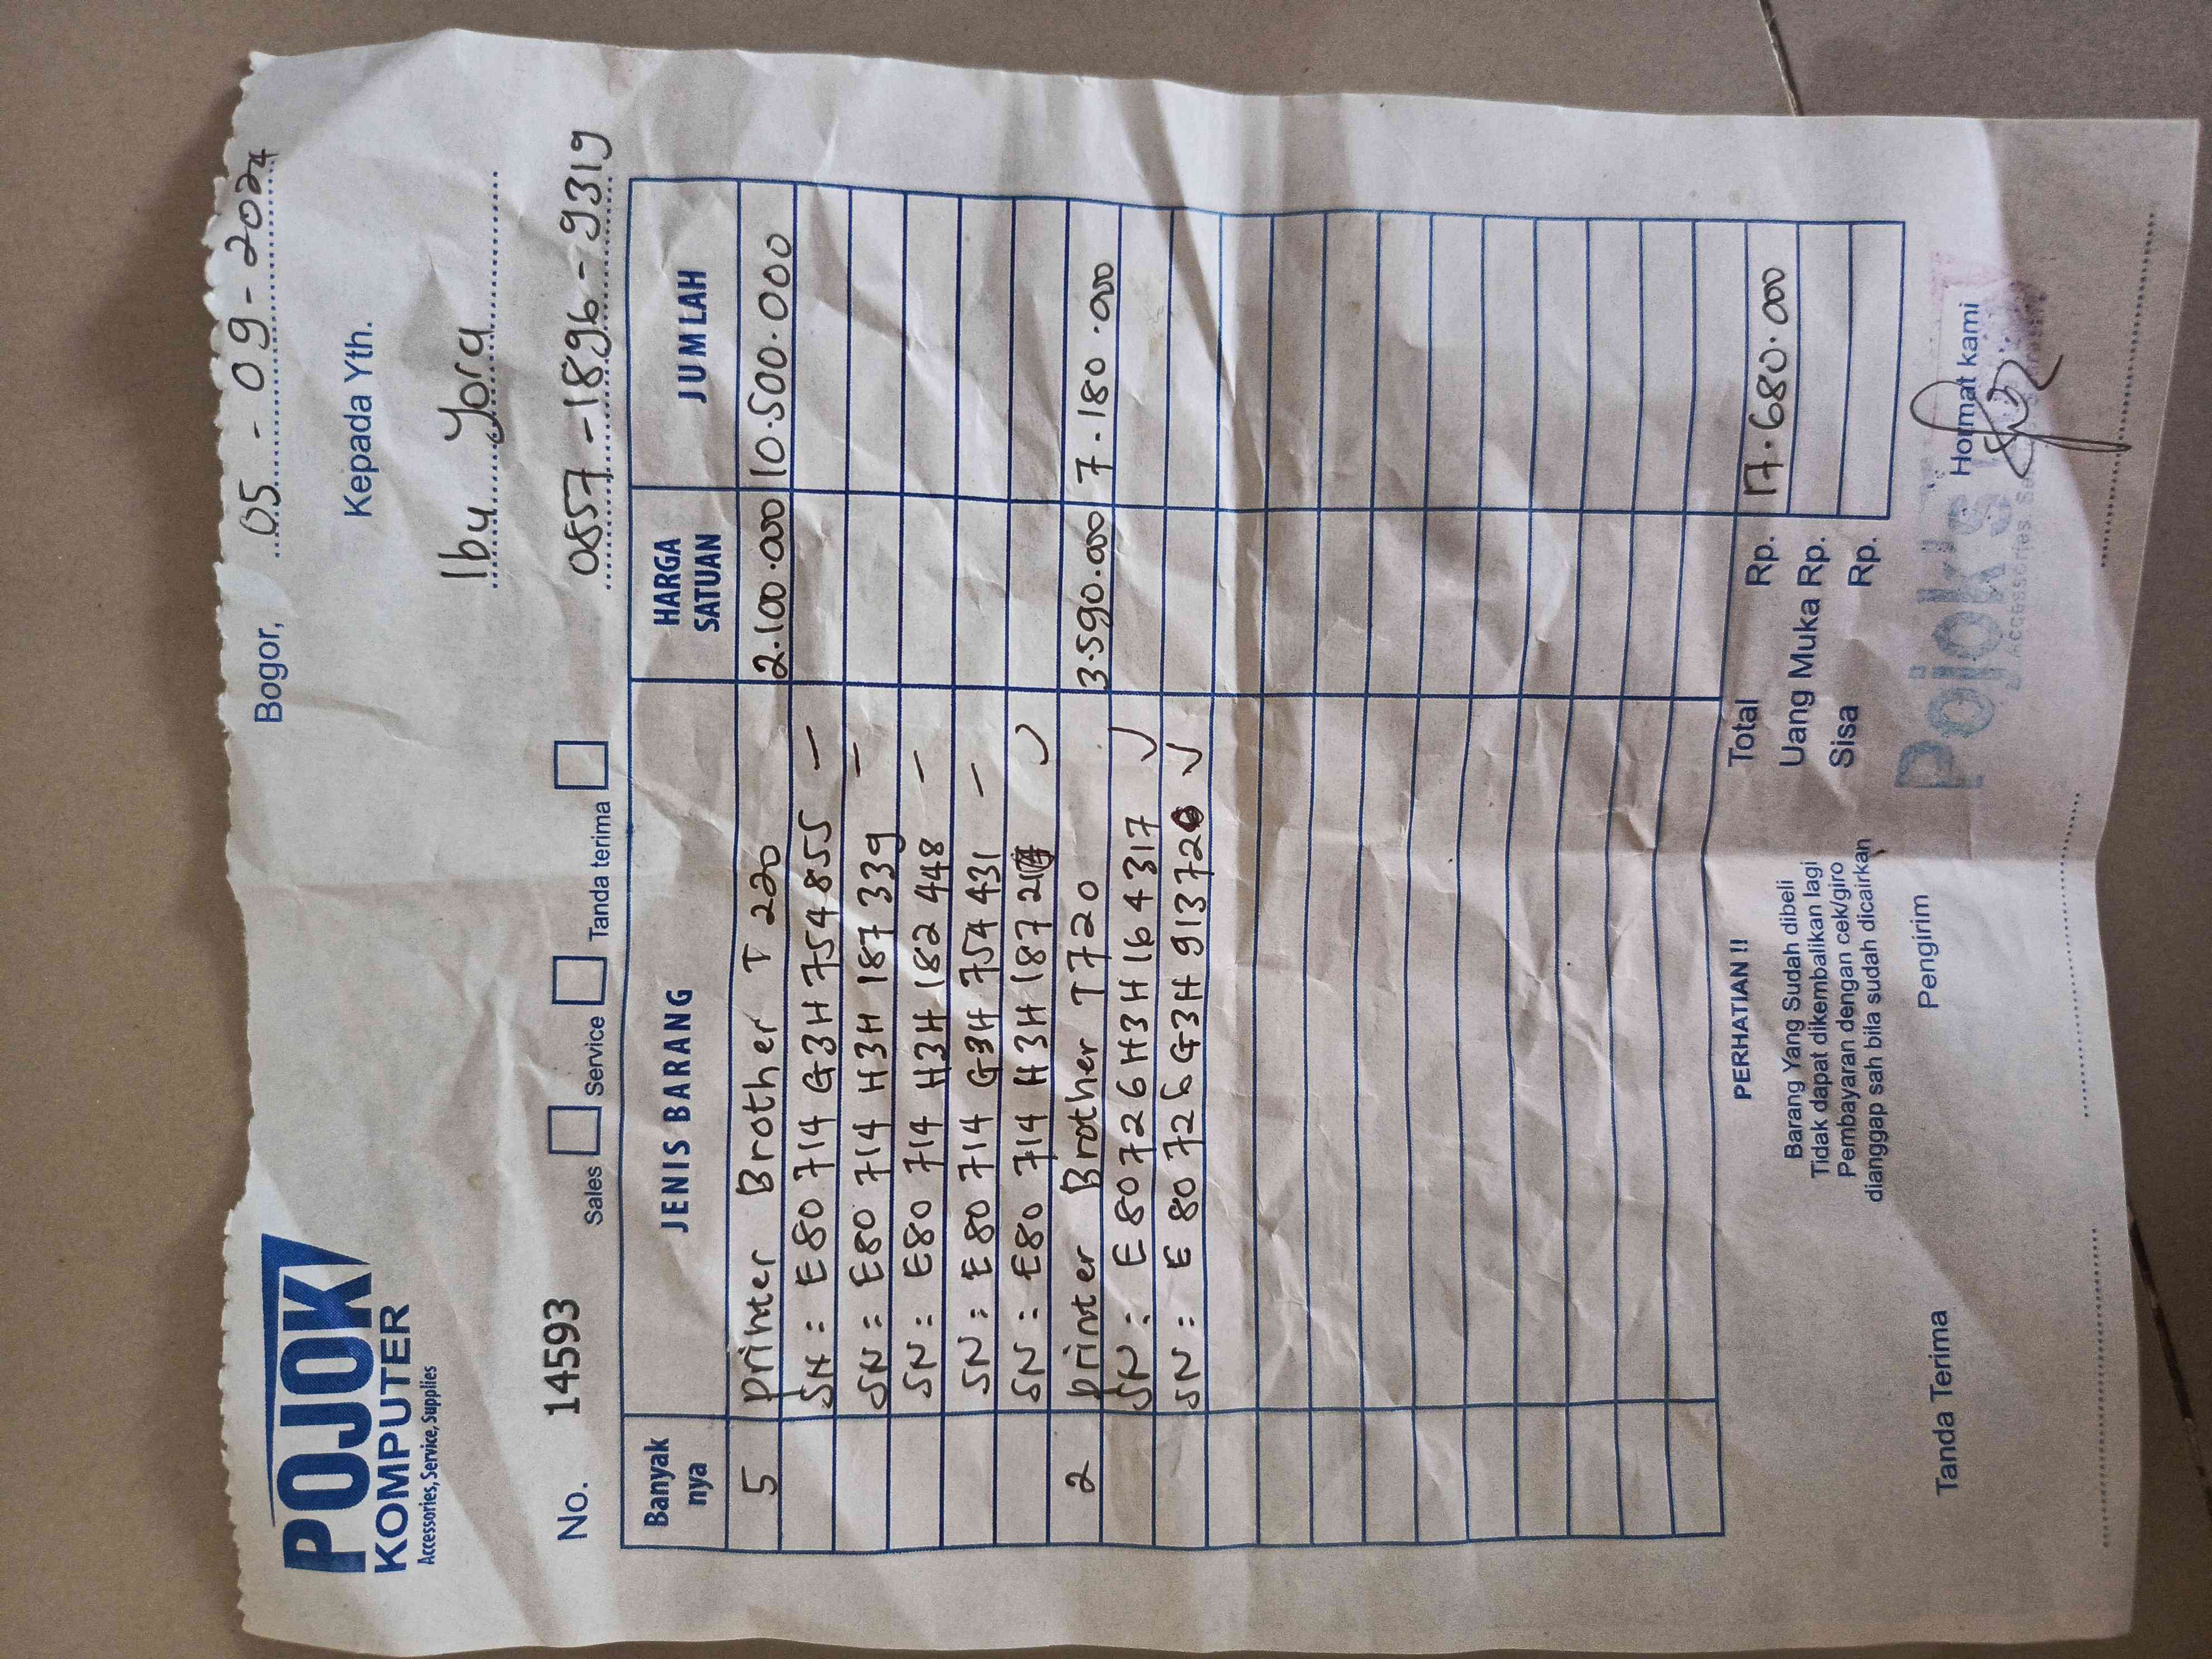 POJOK
KOMPUTER
Accessories, Service, Supplies
Bogor, 05 - 09 - 2024
Kepada Yth.
Ibu Yora
0857 - 1896 - 9319
No. 14593
Sales Service Tanda terima
Banyak nya JENIS BARANG HARGA SATUAN JUMLAH
5 Printer Brother T 220 2.100.000 10.500.000
SN : E80 714 G3H 754 855 –
SN : E80 714 H3H 187 339 –
SN : E80 714 H3H 182 448 –
SN : E80 714 G3H 754 431 –
SN : E80 714 H3H ✓
2 Printer Brother T720 3.590.000 7.180.000
SN : E 80726H3H164317 ✓
SN : E 80726G3H913726 ✓
PERHATIAN !!
Barang Yang Sudah dibeli
Tidak dapat dikembalikan lagi
Pembayaran dengan cek/giro
dianggap sah bila sudah dicairkan
Total Rp. 17.680.000
Uang Muka Rp.
Sisa Rp.
Tanda Terima
Pengirim
Hormat kami
Pojok's
Accessories